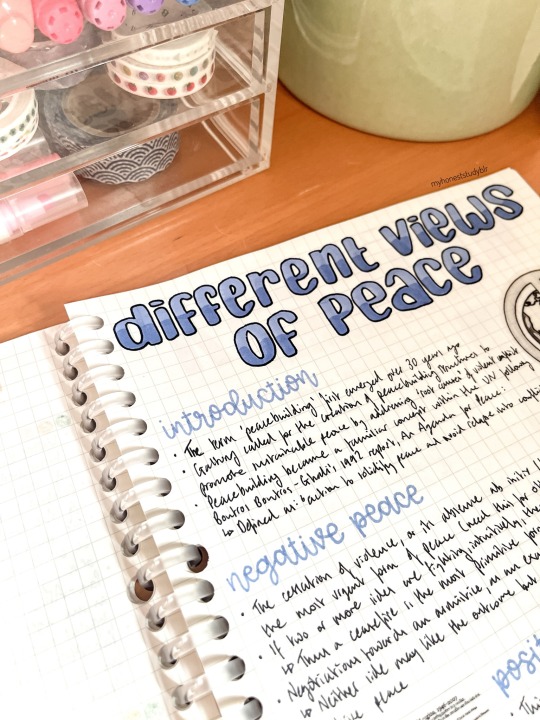 myhoneststudyblr
different views
of peace
introduction
• The term 'peacebuilding' first emerged over 30 years ago
• Galtung called for the creation of peacebuilding structures to
promote sustainable peace by addressing 'root causes' of violent conflict
• Peacebuilding became a familiar concept within the UN following
Boutros Boutros-Ghali's 1992 report, An Agenda for Peace:
↳ Defined as: action to solidify peace and avoid relapse into
negative peace
• The cessation of violence, or its absence
the most urgent form of peace (need this for
• If two or more sides are fighting, intuitively, the
↳ Thus a ceasefire is the most primitive
• Negotiations towards an armistice, as an
↳ Neither side may like the outcome but
peace
posi